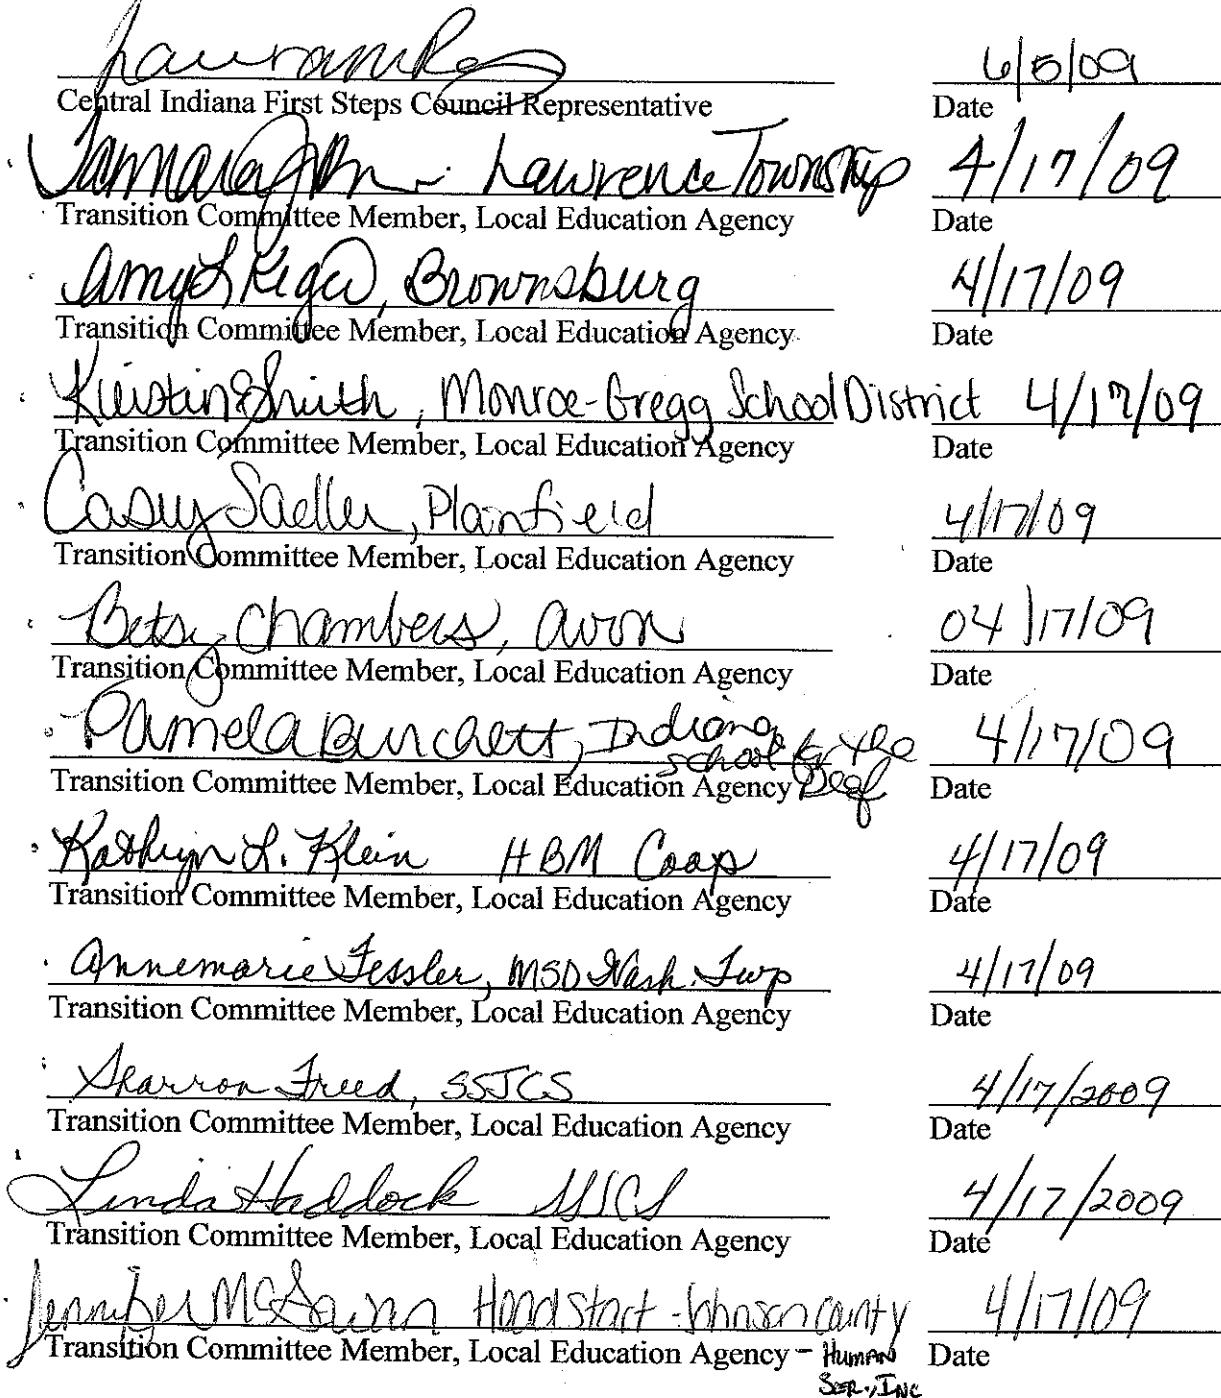 6/5/09
Central Indiana First Steps Council Representative Date
Lawrence Township 4/17/09
Transition Committee Member, Local Education Agency Date
Amy L , Brownsburg 4/17/09
Transition Committee Member, Local Education Agency Date
Smith, Monroe-Gregg School District 4/17/09
Transition Committee Member, Local Education Agency Date
Casey , Plainfield 4/17/09
Transition Committee Member, Local Education Agency Date
Betsy Chambers, Avon 04/17/09
Transition Committee Member, Local Education Agency Date
Pamela Burchett, Indiana School for the Deaf 4/17/09
Transition Committee Member, Local Education Agency Date
Kathryn L. Klein HBM Coop 4/17/09
Transition Committee Member, Local Education Agency Date
Annemarie Fessler, MSD Wash. Twp 4/17/09
Transition Committee Member, Local Education Agency Date
Sharron Freed, SSJCS 4/17/2009
Transition Committee Member, Local Education Agency Date
Linda Haddock 4/17/2009
Transition Committee Member, Local Education Agency Date
Jennifer Head Start - Johnson County 4/17/09
Transition Committee Member, Local Education Agency - Human Date
Ser., Inc